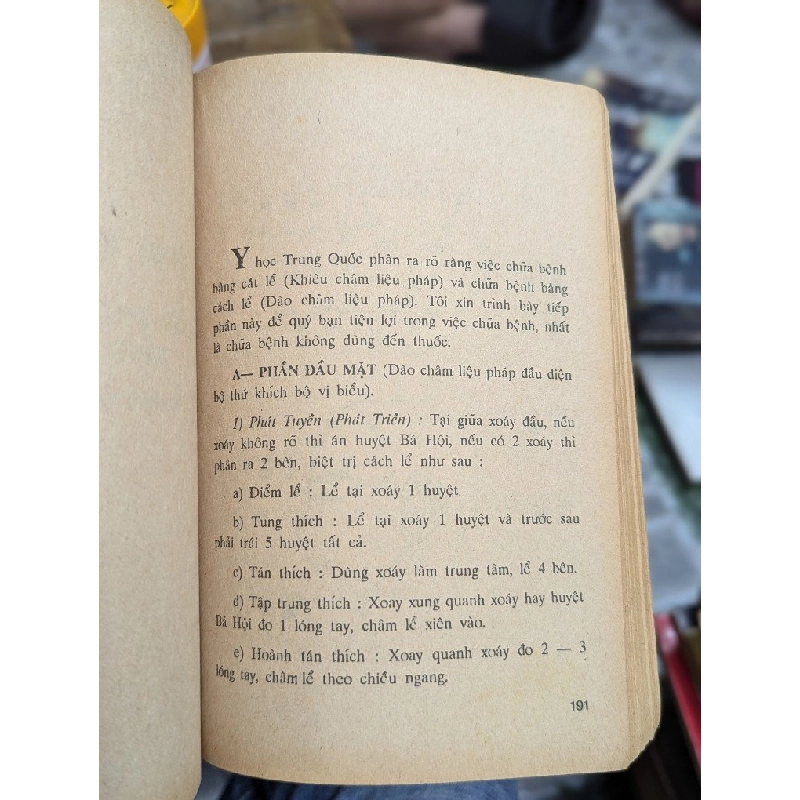 Y học Trung Quốc phân ra rõ ràng việc chữa bệnh
bằng cắt lể (Khiêu châm liệu pháp) và chữa bệnh bằng
cách lể (Đào châm liệu pháp). Tôi xin trình bày tiếp
phần này để quý bạn tiện lợi trong việc chữa bệnh, nhất
là chữa bệnh không dùng đến thuốc.
A— PHẦN ĐẦU MẶT (Đào châm liệu pháp đầu diện
bộ thứ khích bộ vị biểu).
1) Phát Tuyền (Phát Triền) : Tại giữa xoáy đầu, nếu
xoáy không rõ thì án huyệt Bá Hội, nếu có 2 xoáy thì
phân ra 2 bên, biệt trị cách lể như sau :
a) Điểm lể : Lể tại xoáy 1 huyệt
b) Tung thích : Lể tại xoáy 1 huyệt và trước sau
phải trái 5 huyệt tất cả.
c) Tán thích : Dùng xoáy làm trung tâm, lể 4 bên.
d) Tập trung thích : Xoay xung quanh xoáy hay huyệt
Bá Hội đo 1 lóng tay, châm lể xiên vào.
e) Hoành tán thích : Xoay quanh xoáy đo 2 — 3
lóng tay, châm lể theo chiều ngang.
191